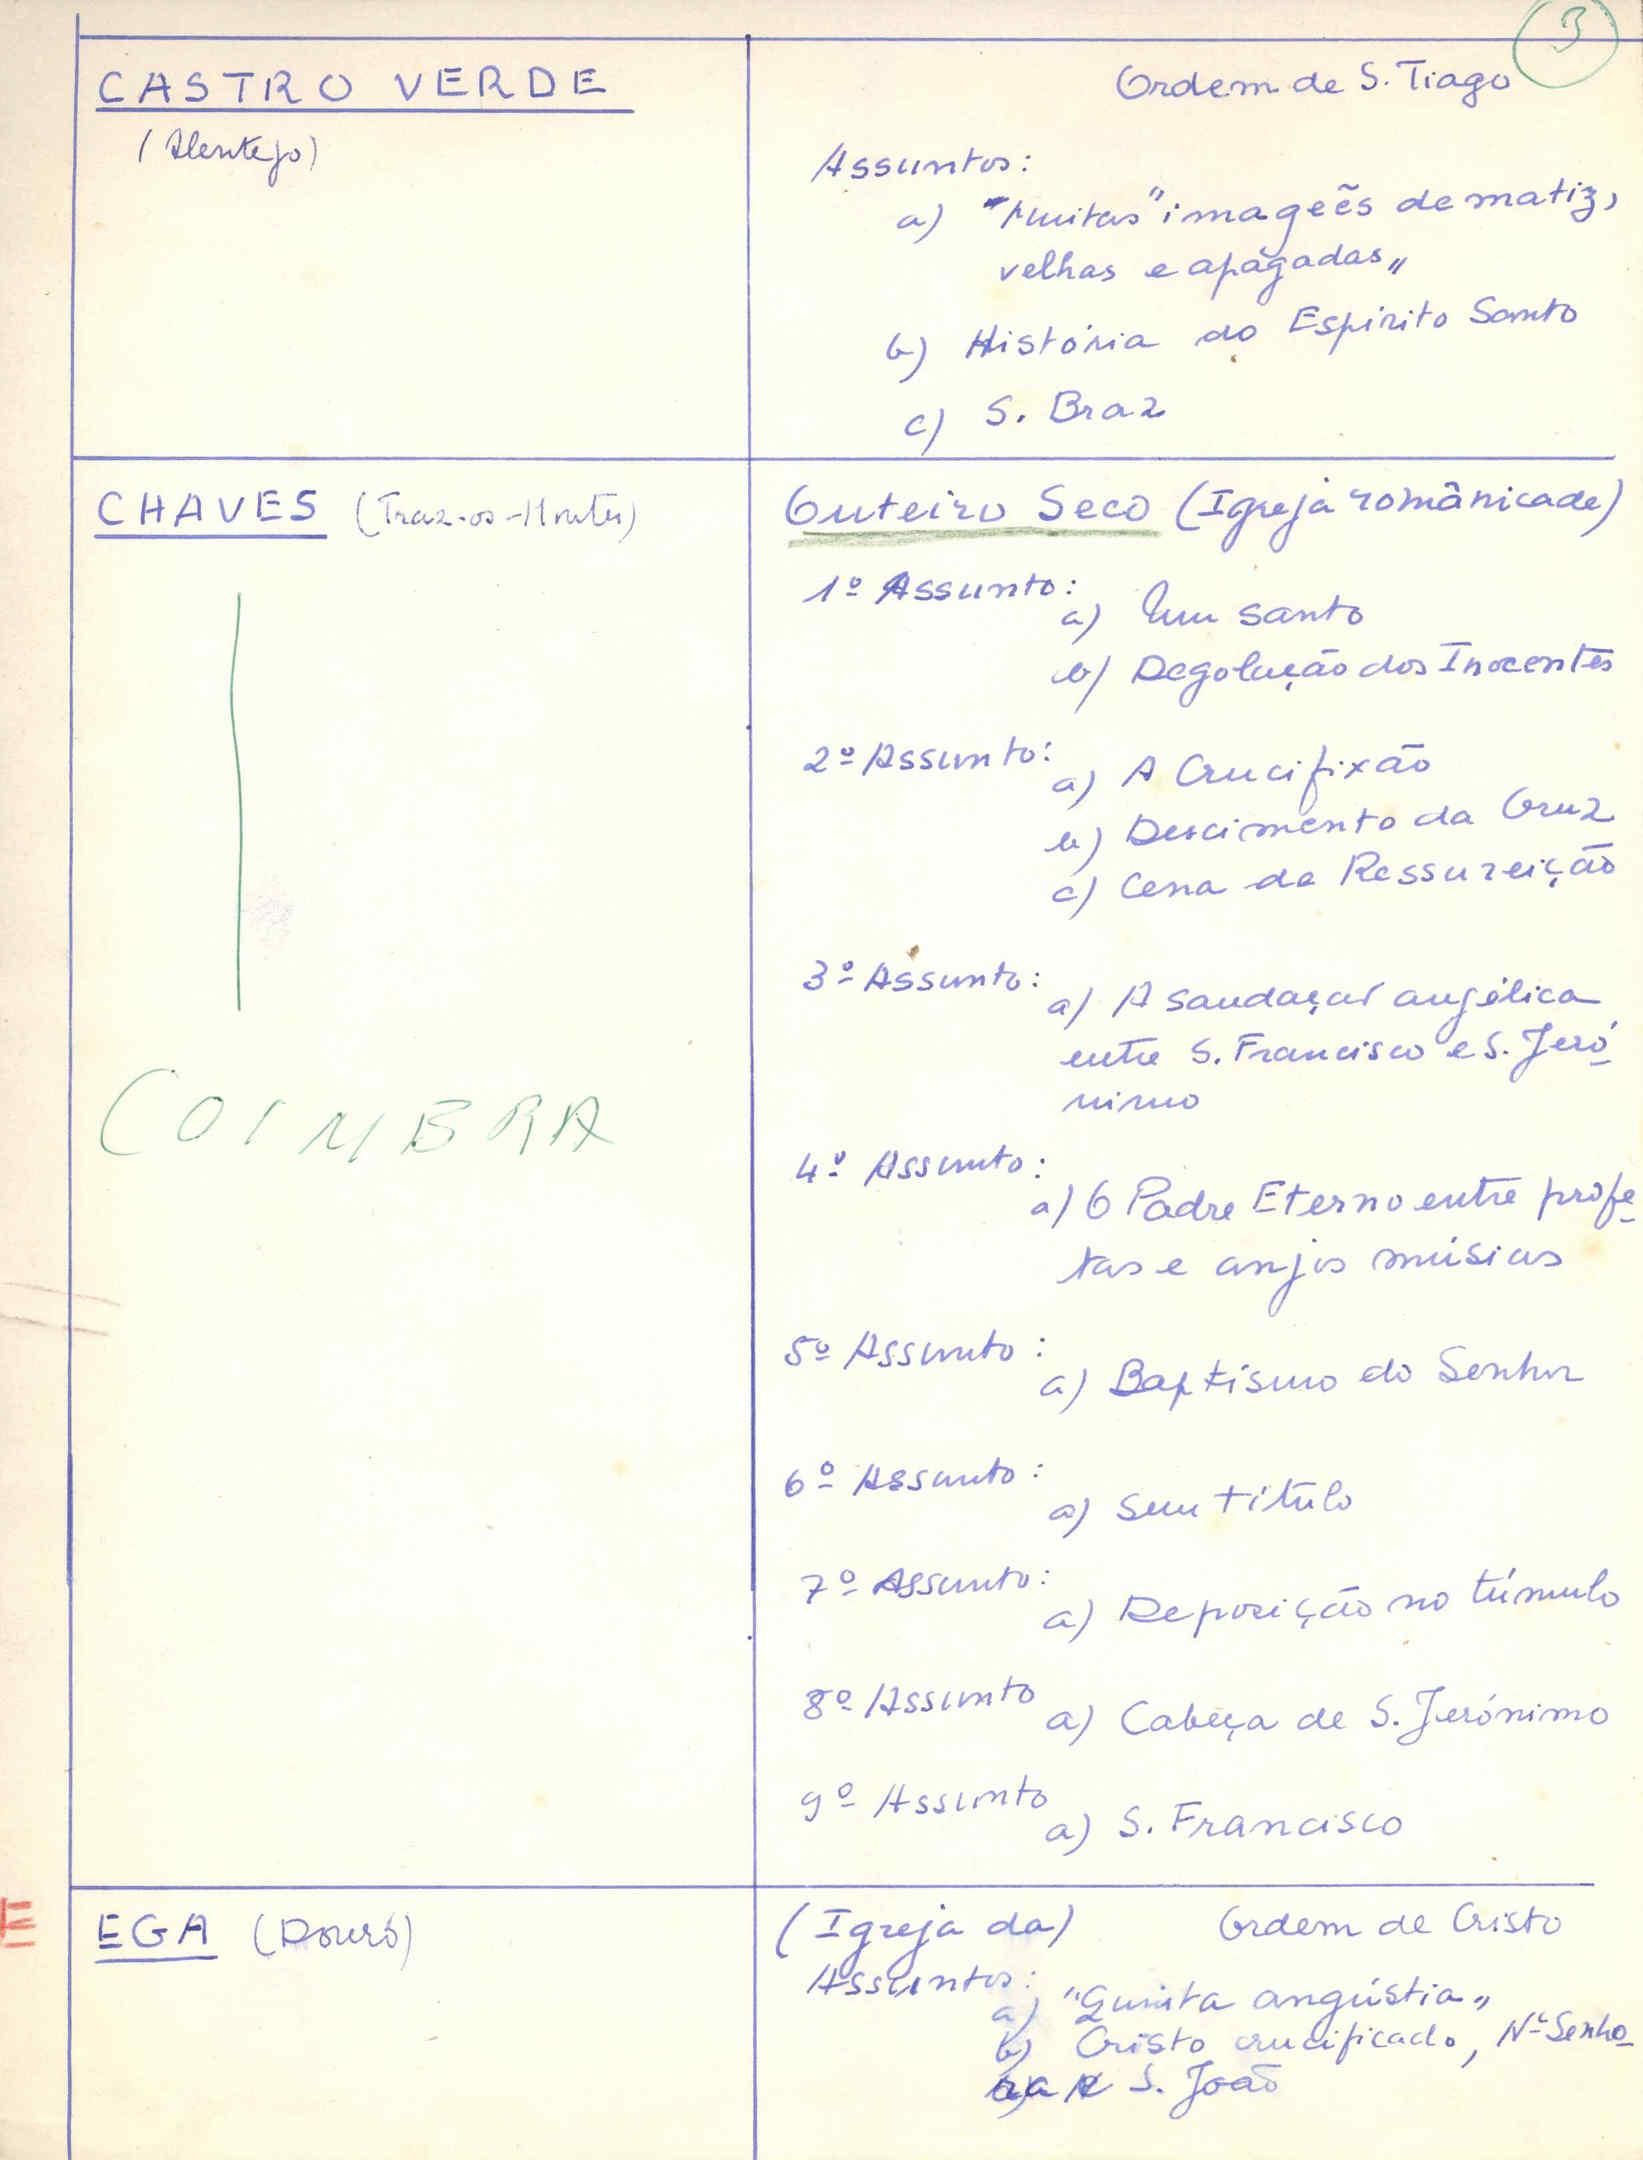 3
CASTRO VERDE
(Alentejo)
Ordem de S. Tiago
Assuntos:
a) "Muitas" imageẽs de matiz,
velhas e apagadas"
b) História do Espírito Santo
c) S. Braz
CHAVES (Traz-os-Montes)
COIMBRA
Outeiro Seco (Igreja românica de)
1º Assunto:
a) Um santo
b) Degolação dos Inocentes
2º Assunto:
a) A Crucifixão
b) Descimento da Cruz
c) Cena da Ressureição
3º Assunto:
a) A saudação angélica
entre S. Francisco e S. Jeró-
nimo
4º Assunto:
a) O Padre Eterno entre profe-
tas e anjos músicos
5º Assunto:
a) Baptismo do Senhor
6º Assunto:
a) Sem título
7º Assunto:
a) Deposição no túmulo
8º Assunto
a) Cabeça de S. Jerónimo
9º Assunto
a) S. Francisco
E
EGA (Douro)
(Igreja da) Ordem de Cristo
Assuntos:
a) "Quinta angústia"
b) Cristo crucificado, Nª Senho-
ra e S. João